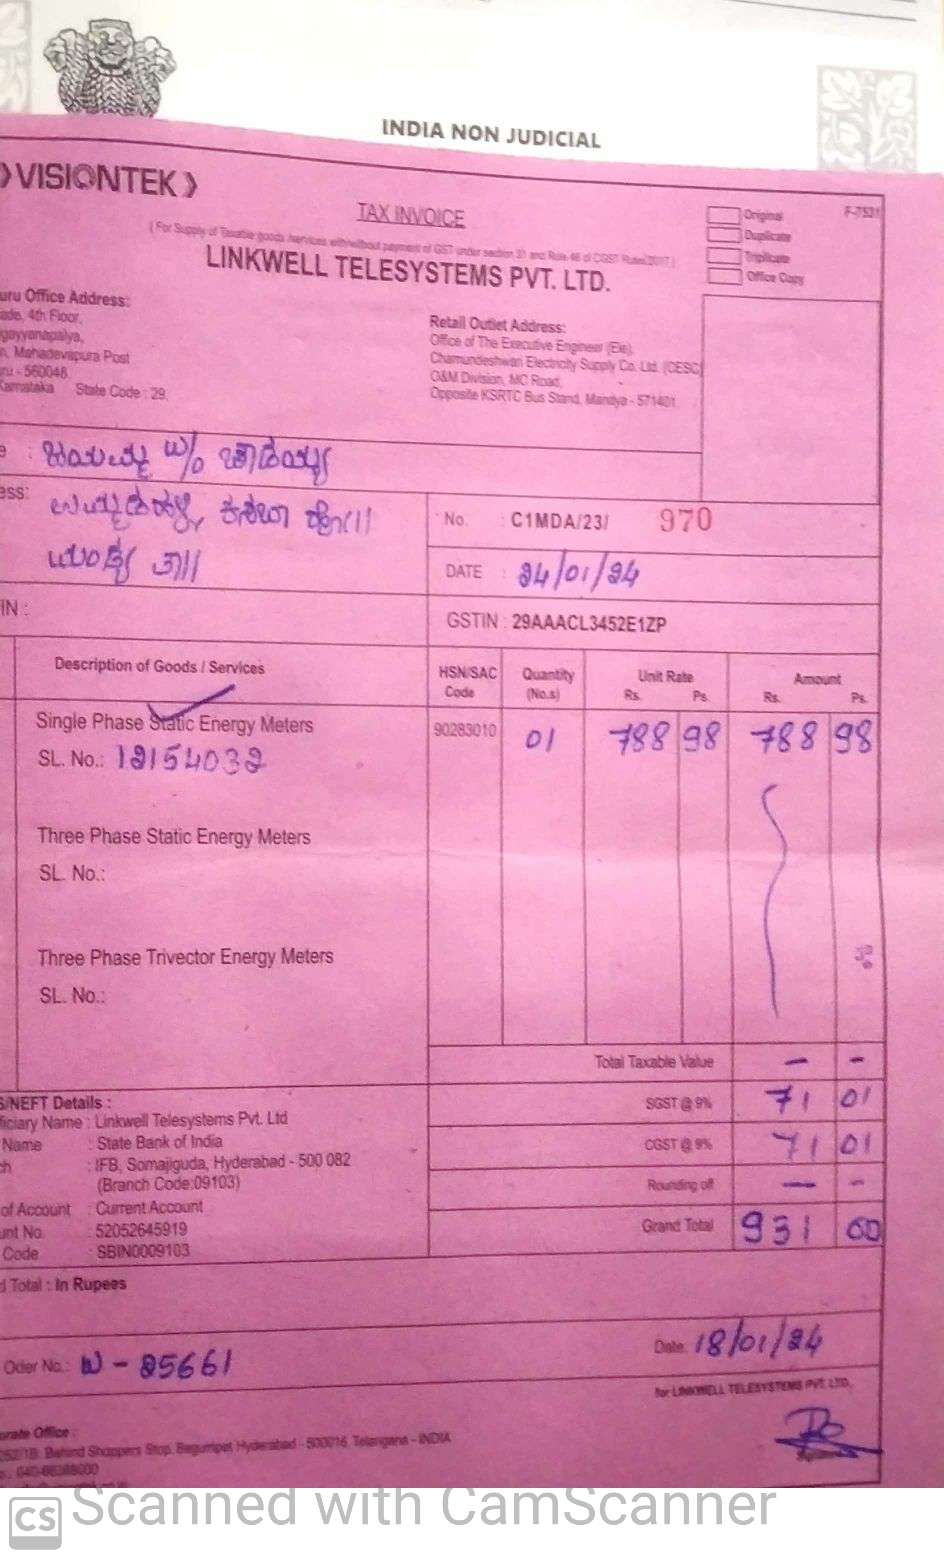 INDIA NON JUDICIAL
VISIONTEK
TAX INVOICE
Original
F-7531
( For Supply of Taxable goods /services with/without payment of GST under section 31 and Rule 46 of CGST Rules2017.)
Duplicate
LINKWELL TELESYSTEMS PVT. LTD.
Triplicate
Office Copy
uru Office Address:
ade, 4th Floor,
gayyanapalya,
n, Mahadevapura Post
ru - 560048.
Karnataka State Code : 29.
Retail Outlet Address:
Office of The Executive Engineer (Ele),
Chamundeshwari Electricity Supply Co. Ltd. (CESC)
O&M Division, MC Road,
Opposite KSRTC Bus Stand, Mandya - 571401.
e : W/o
ess:
No. : C1MDA/23/ 970
DATE : 24/01/24
IN :
GSTIN : 29AAACL3452E1ZP
Description of Goods / Services HSN/SAC Code Quantity (No.s) Unit Rate Rs. Ps. Amount Rs. Ps.
Single Phase Static Energy Meters 90283010 01 788 98 788 98
SL. No.: 12154032
Three Phase Static Energy Meters
SL. No.:
Three Phase Trivector Energy Meters
SL. No.:
Total Taxable Value — -
S/NEFT Details :
SGST @ 9% 71 01
ficiary Name : Linkwell Telesystems Pvt. Ltd
Name : State Bank of India
CGST @ 9% 71 01
ch : IFB, Somajiguda, Hyderabad - 500 082
(Branch Code:09103)
Rounding off — -
of Account : Current Account
unt No. : 52052645919
Grand Total 931 00
Code : SBIN0009103
d Total : In Rupees
Oder No.: W - 25661
Date. 18/01/24
for LINKWELL TELESYSTEMS PVT. LTD.
orate Office :
252/1B, Behind Shoppers Stop, Begumpet Hyderabad - 500016, Telangana - INDIA
CS Scanned with CamScanner